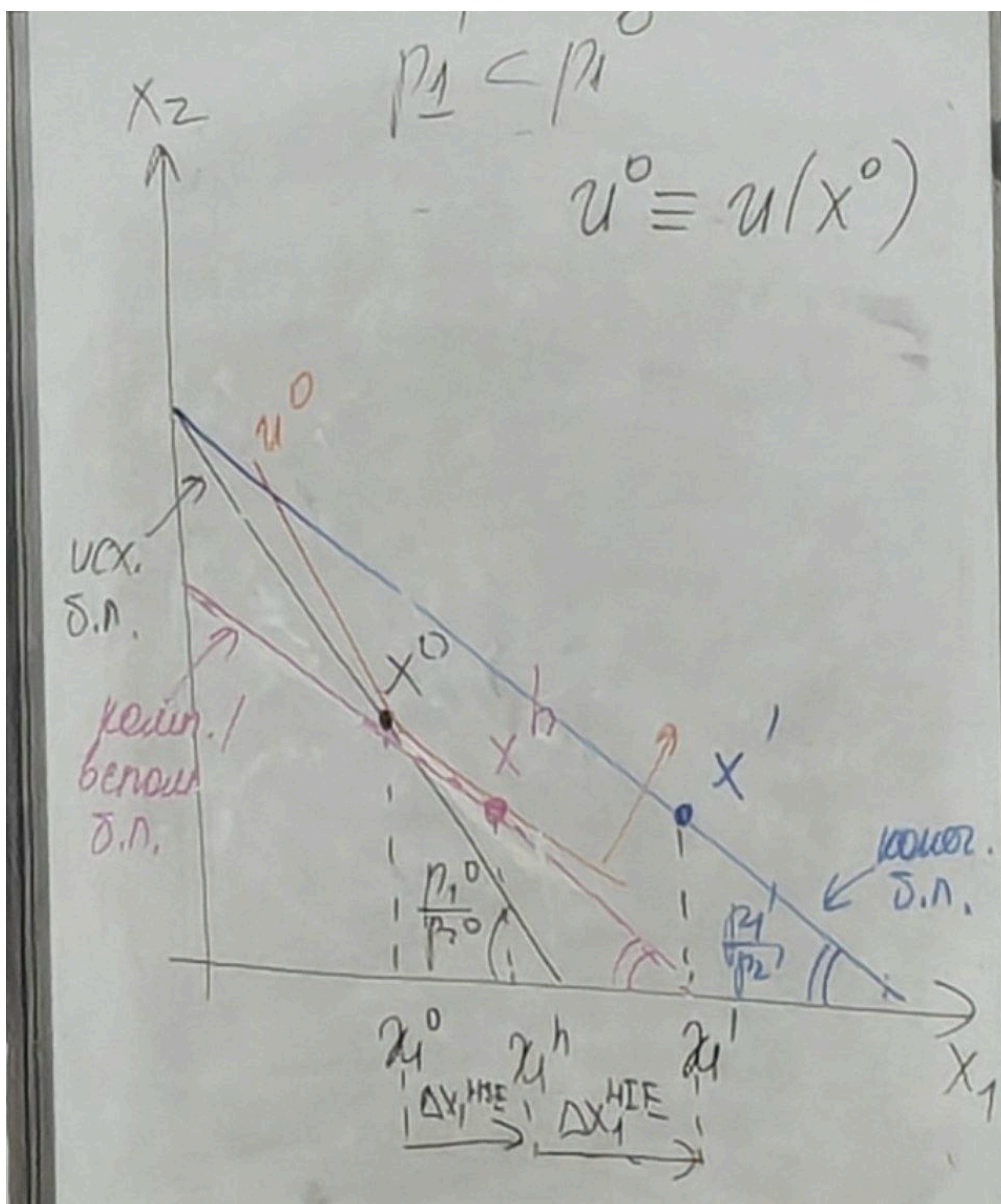 p₁' < p₁⁰
x₂
u⁰ ≡ u(x⁰)
u⁰
исх.
б.л.
x⁰
комп./
вспом
б.л.
xʰ
x'
конеч.
б.л.
p₁⁰/p₂⁰
p₁'/p₂'
x₁⁰ x₁ʰ x₁'
x₁
Δx₁ᴴˢᴱ Δx₁ᴴᴵᴱ